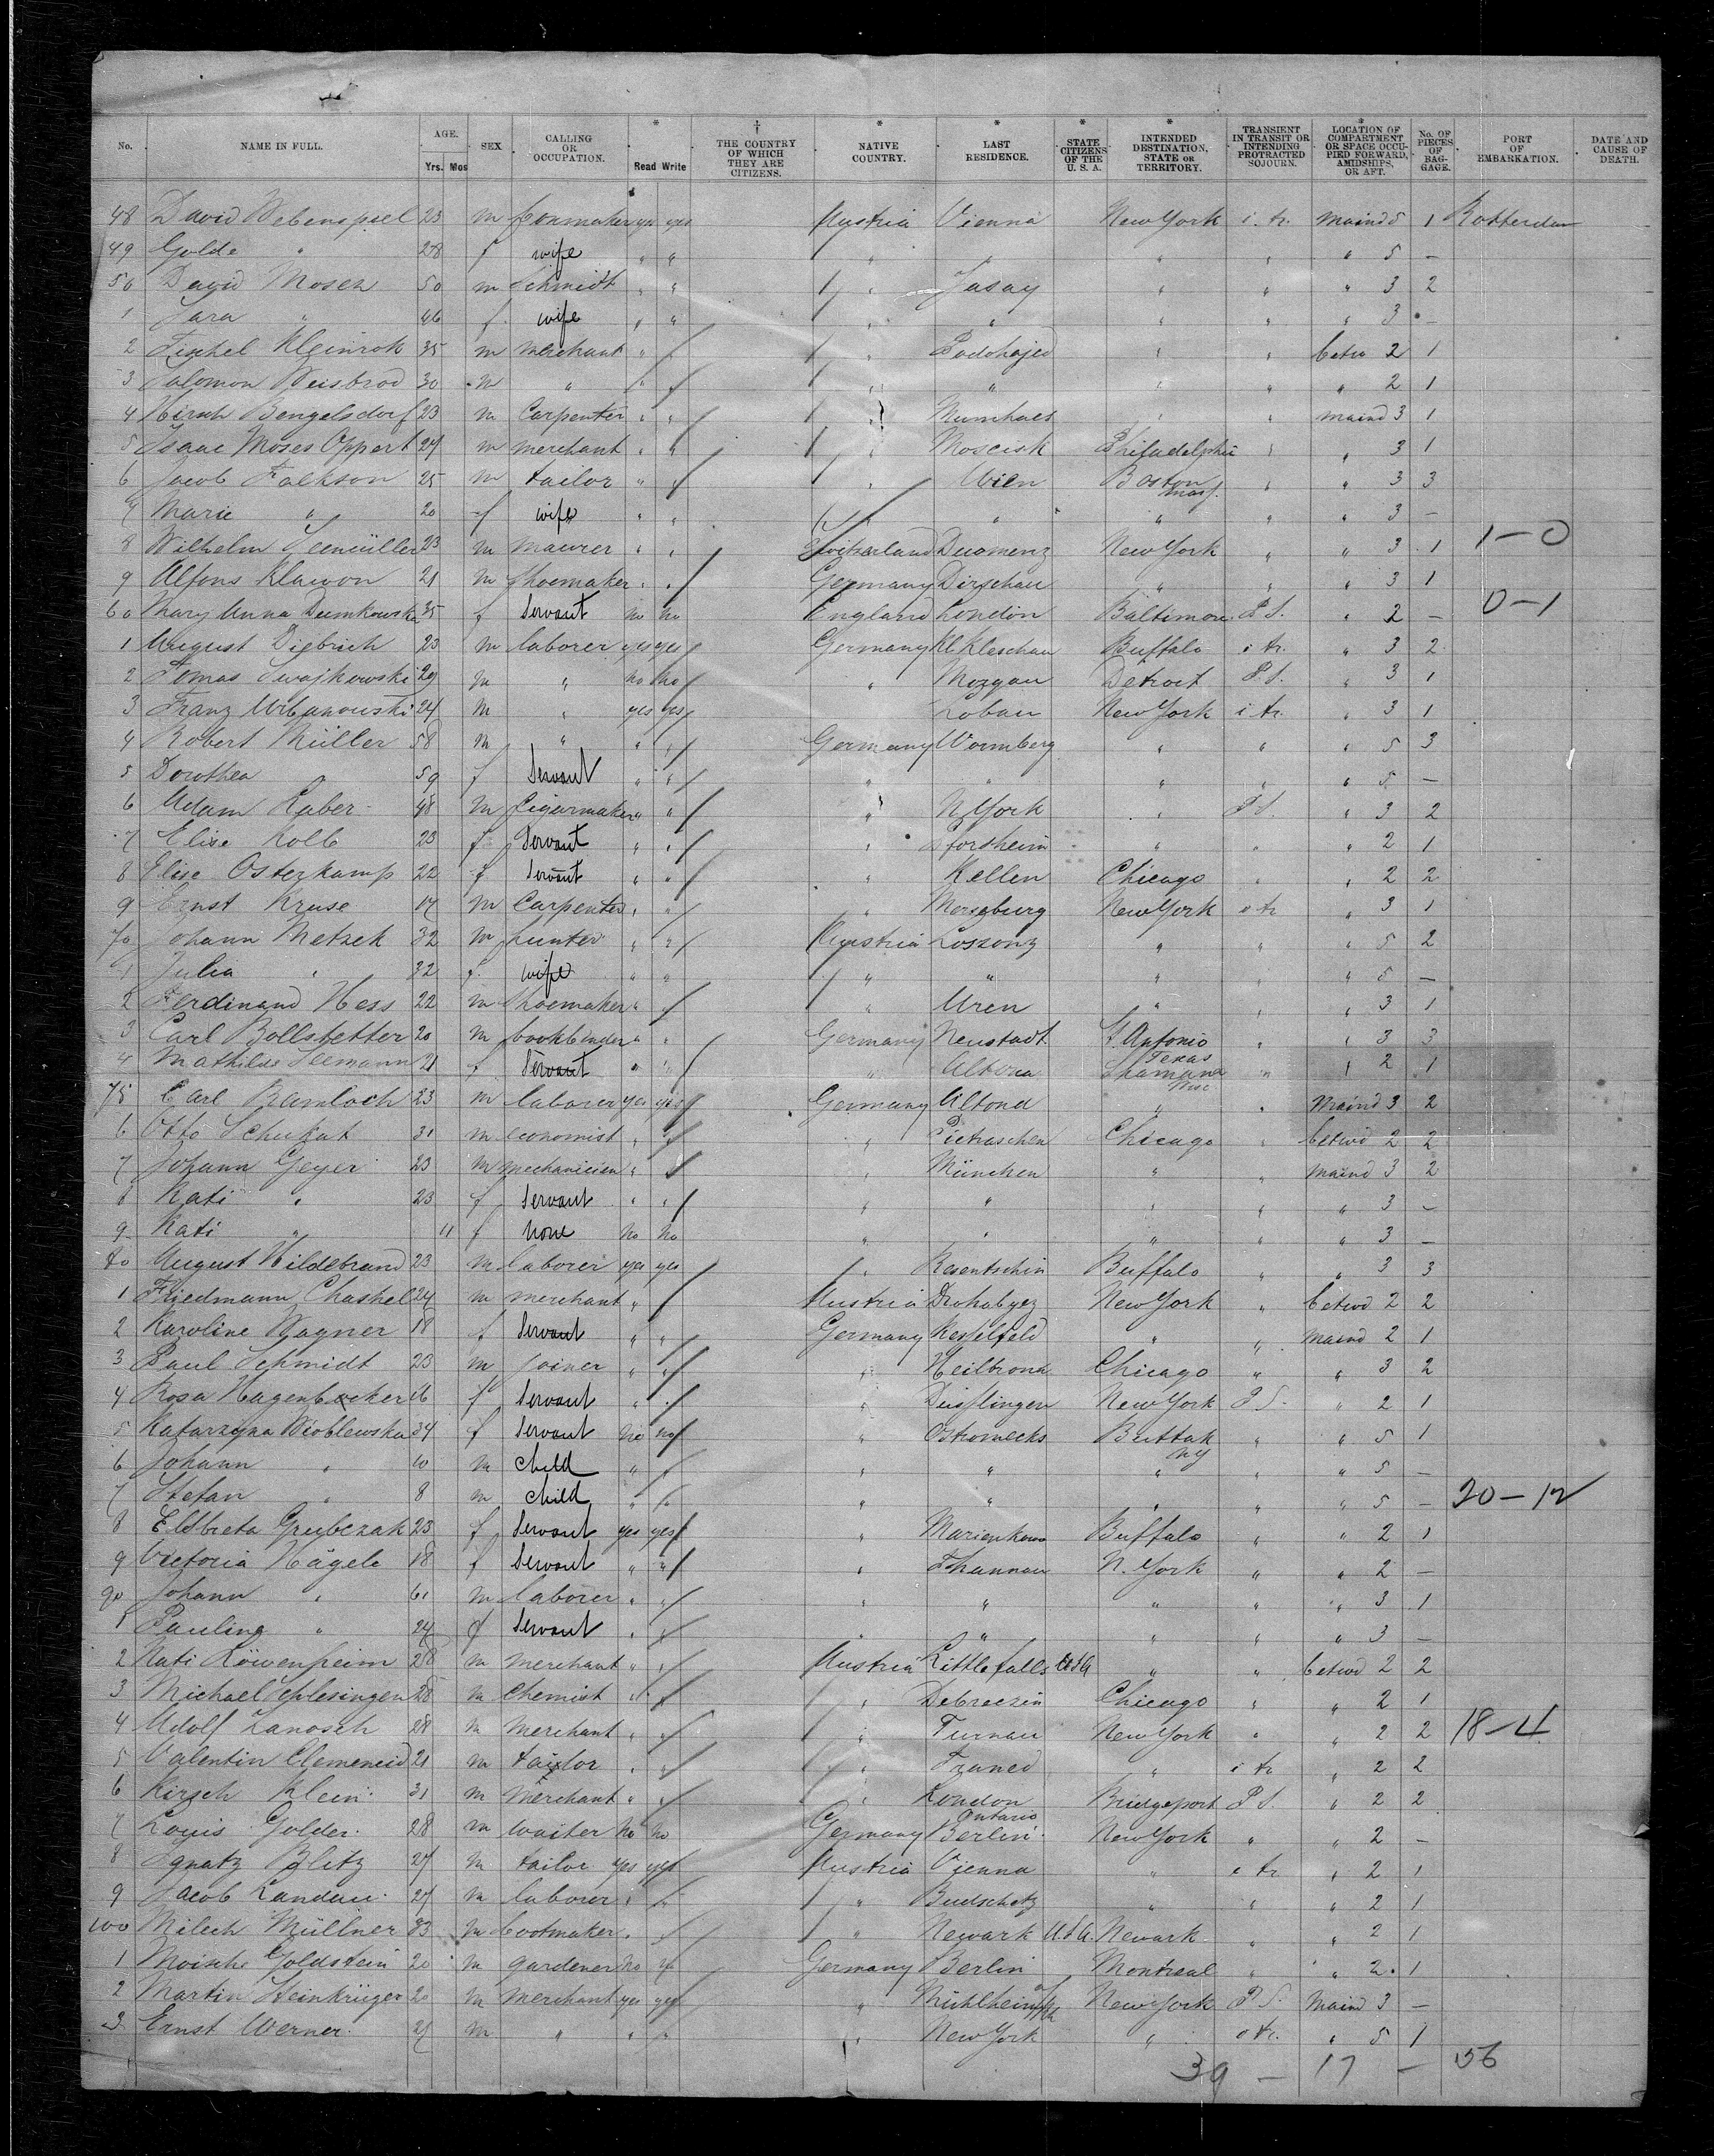 No. NAME IN FULL. AGE. Yrs. Mos SEX CALLING OR OCCUPATION. * Read Write † THE COUNTRY OF WHICH THEY ARE CITIZENS. * NATIVE COUNTRY. * LAST RESIDENCE. * STATE CITIZENS OF THE U. S. A. * INTENDED DESTINATION, STATE OR TERRITORY. TRANSIENT IN TRANSIT OR INTENDING PROTRACTED SOJOURN. * LOCATION OF COMPARTMENT OR SPACE OCCUPIED FORWARD, AMIDSHIPS, OR AFT. No. OF PIECES OF BAGGAGE. PORT OF EMBARKATION. DATE AND CAUSE OF DEATH.
48 David 23 m yes yes Austria Vienna New York i. tr. maind 5 1 Rotterdam
49 Golde " 28 f wife " " " " " " " 5 —
50 David Mosch 50 m Schmidt " " " Jasay " " " 3 2
1 Sara " 46 f. wife " " " " " " " 3 —
2 Fischel Kleinrok 35 m merchant " " " Podohajed " " betw 2 1
3 Salomon Weisbrod 30 m " " " " " " 2 1
4 Hirsch Bengelsdorf 23 m Carpenter " " " " " maind 3 1
5 Isaac Moses Oppert 24 m merchant " " " Moscisk Philadelphia " " 3 1
6 Jacob Falkson 25 m tailor " " " Wien Boston Mass. " " 3 3
7 Marie " 20 f wife " " " " " " " 3 —
8 Wilhelm Seemüller 23 m maurer " " Switzerland New York " " 3 1 1–0
9 Alfons Klawon 21 m shoemaker " " Germany Dirschau " " " 3 1
60 Mary Anna Dumkowska 35 f Servant no no England London Baltimore P.S. " 2 — 0–1
1 August Diebrich 23 m laborer yes yes Germany Kl Kleschau Buffalo i tr. " 3 2
2 Tomas Swajkowski 29 m " no no " Mozgau Detroit P.S. " 3 1
3 Franz Urbanowski 24 m " yes yes Lobau New York i tr. " 3 1
4 Robert Müller 58 m " " " Germany Wormberg " " " 5 3
5 Dorothea " 59 f Servant " " " " " " " 5 —
6 Adam Raber 48 m Cigarmaker " " " N York " P.S. " 3 2
7 Elise Kolb 23 f Servant " " " Pforzheim " " " 2 1
8 Elise Osterkamp 22 f Servant " " " Kellen Chicago " " 2 2
9 Ernst Kruse 17 m Carpenter " " " Merseburg New York i tr " 3 1
70 Johann Metzek 32 m hunter " " Austria Loszonz " " " 5 2
1 Julia " 22 f. wife " " " " " " " 5 —
2 Ferdinand Hess 22 m shoemaker " " " Uren " " " 3 1
3 Carl Bollstetter 20 m bookbinder " " Germany Neustadt S. Antonio Texas " " 3 3
4 Mathilde Seemann 21 f Servant " " " Altona Wisc " " 2 1
75 Carl Ramloch 23 m laborer yes yes Germany Altona " " Maind 3 2
6 Otto Schukat 31 m economist " " " Pietraschen Chicago " betwd 2 2
7 Johann Geyer 23 m mechanicien " " " München " " maind 3 2
8 Kati " 23 f Servant " " " " " " " 3 —
9 Kati " 11 f None no no " " " " " 3 —
80 August Hildebrand 23 m laborer yes yes " Resentschin Buffalo " " 3 3
1 Friedmann Chaskel 24 m merchant " " Austria Drohabycz New York " betwd 2 2
2 Karoline Wagner 18 f Servant " " Germany Kesselfeld " " maind 2 1
3 Paul Schmidt 23 m joiner " " " Heilbronn Chicago " " 3 2
4 Rosa Hagenbucker 16 f Servant " " " Deisslingen New York P S. " 2 1
5 Katarzyna Wioblewska 34 f Servant no no " Ostromecko NY " " 5 1
6 Johann " 10 m child " " " " " " " 5 —
7 Stefan " 8 m child " " " " " " " 5 — 20–12
8 Elsbieta Grubczak 23 f Servant yes yes " Buffalo " " 2 1
9 Victoria Hägele 18 f Servant " " " Thannau N. York " " 2 —
90 Johann " 61 m laborer " " " " " " " 3 1
1 Pauline " 24 f Servant " " " " " " " 3 —
2 Nati Löwenheim 28 m merchant " " Austria Little falls U.S.A " " betwd 2 2
3 Michael Schlesinger 28 m Chemist " " " Debreczin Chicago " " 2 1
4 Adolf Janosch 28 m merchant " " " Turnau New York " " 2 2 18–4
5 Valentin 21 m tailor " " " " i tr " 2 2
6 Hirsch Klein 31 m merchant " " " London Ontario Bridgeport P S. " 2 2
7 Louis Golder 28 m waiter no no Germany Berlin New York " " 2 —
8 Ignatz Blitz 27 m tailor yes yes Austria Vienna " i tr " 2 1
9 Jacob Landau 27 m laborer " " " Budschatz " " " 2 1
100 Milech Müllner 33 m bootmaker " " " Newark U.S.A. Newark " " 2 1
1 Moische Goldstein 20 m gardener no " Germany Berlin Montreal " " 2 1
2 Martin Steinkrüger 20 m merchant yes yes " Mühlheim New York P S. Maind 3 —
3 Ernst Werner 27 m " " " " New York " i tr. " 5 1
39 – 17 – 56